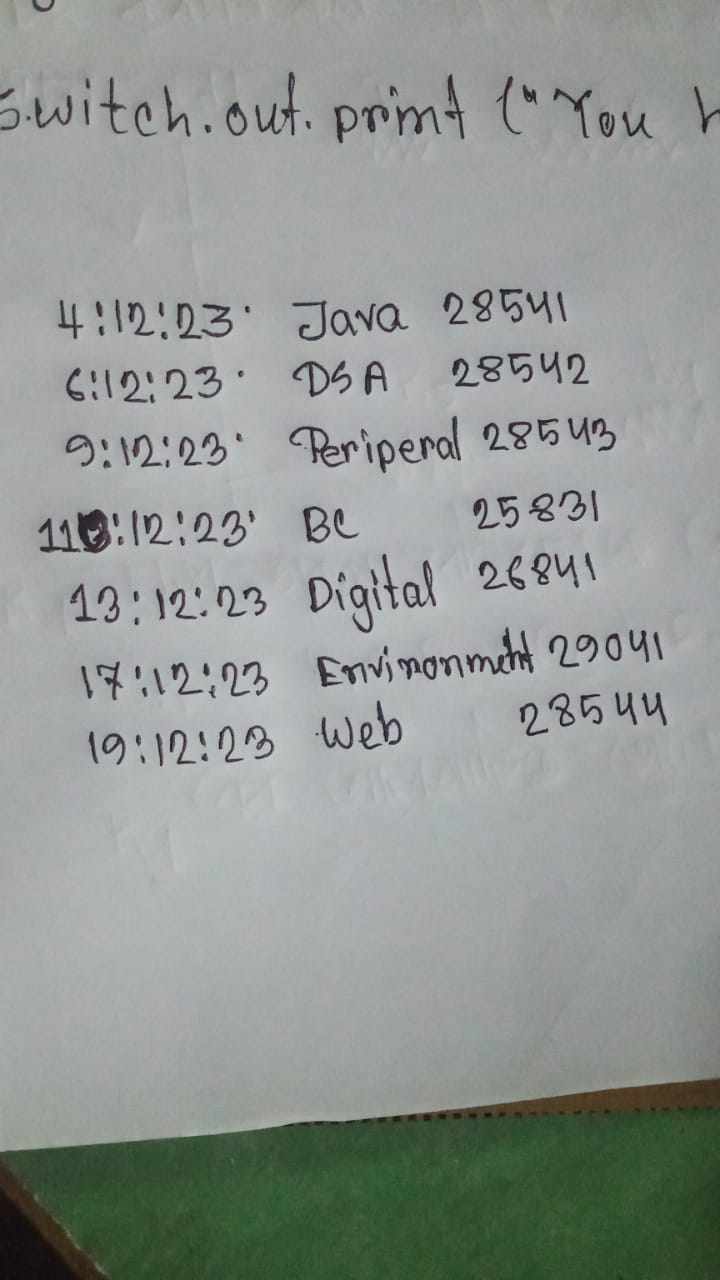 S.witch.out.print ("You h
4:12:23. Java 28541
6:12:23. DSA 28542
9:12:23. Periperal 28543
11:12:23. BC 25831
13:12:23 Digital 26841
17:12:23 Environment 29041
19:12:23 Web 28544